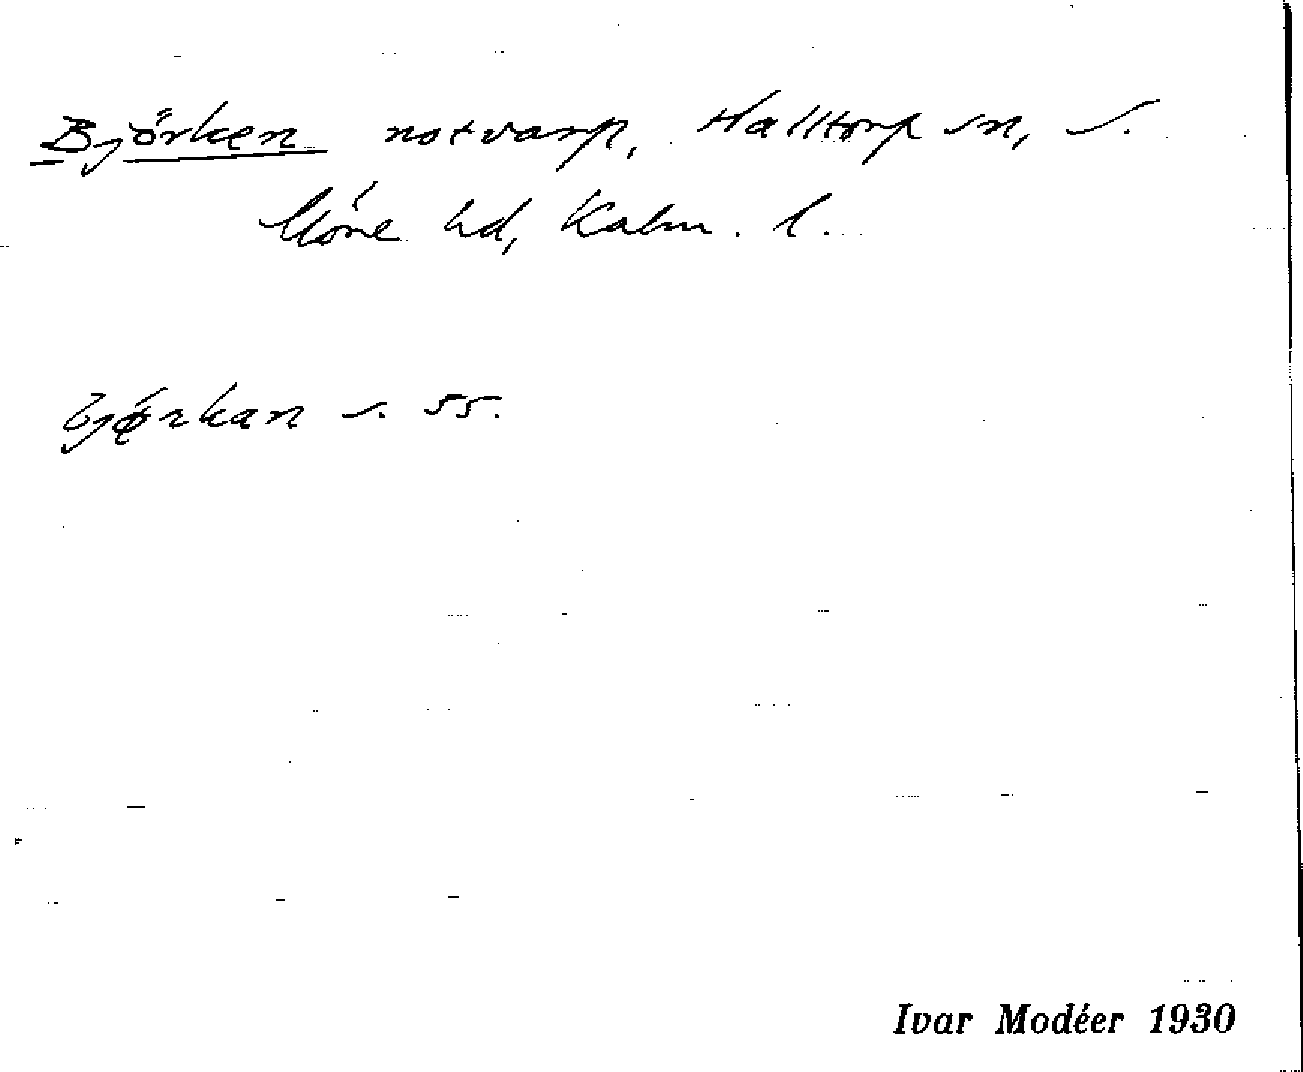 Björken notvarp, Halltorp sn, S.
Möre hd, Kalm. l.
bjørkan s. 55.
Ivar Modéer 1930